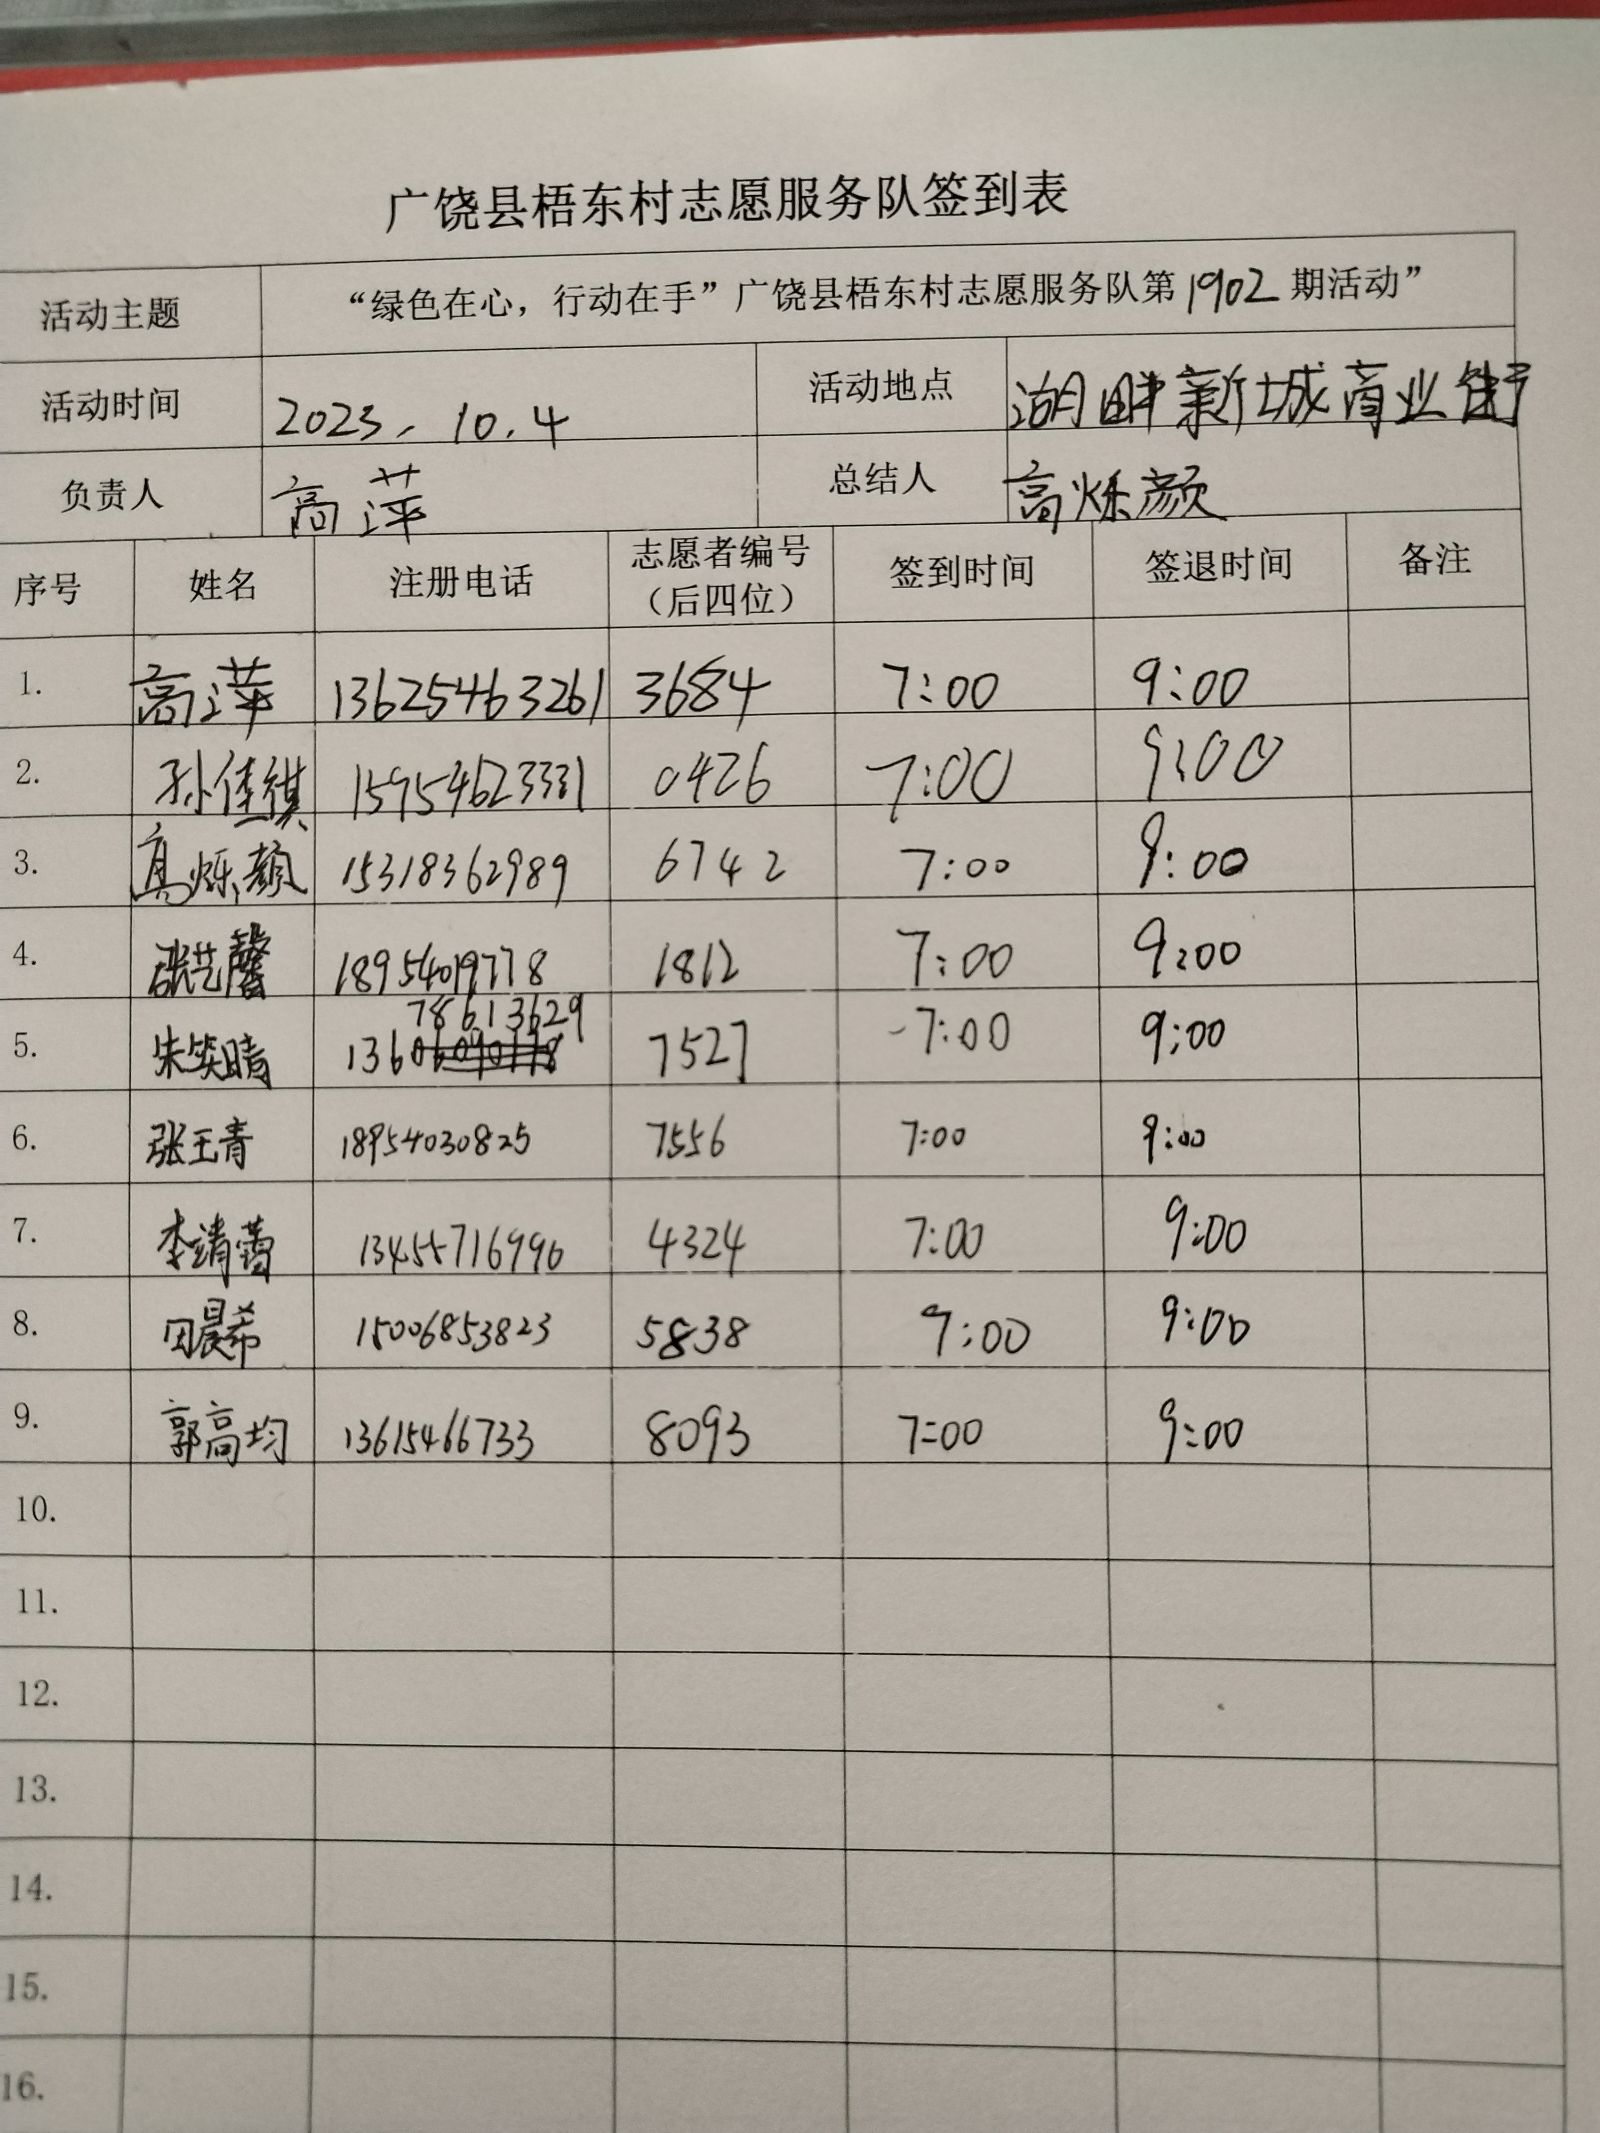 广饶县梧东村志愿服务队签到表
活动主题 “绿色在心，行动在手”广饶县梧东村志愿服务队第1902期活动”
活动时间 2023.10.4 活动地点 湖畔新城商业街
负责人 高萍 总结人 高烁颜
序号 姓名 注册电话 志愿者编号（后四位） 签到时间 签退时间 备注
1. 高萍 13625463261 3684 7:00 9:00
2. 孙佳祺 15954623331 0426 7:00 9:00
3. 高烁颜 15318362989 6742 7:00 9:00
4. 张艺馨 18954019778 1812 7:00 9:00
78613629
5. 朱笑晴 136 7527 7:00 9:00
6. 张玉青 18954030825 7556 7:00 9:00
7. 李靖蕾 13455716996 4324 7:00 9:00
8. 田晨希 15006853823 5838 9:00 9:00
9. 郭高均 13615466733 8093 7:00 9:00
10.
11.
12.
13.
14.
15.
16.